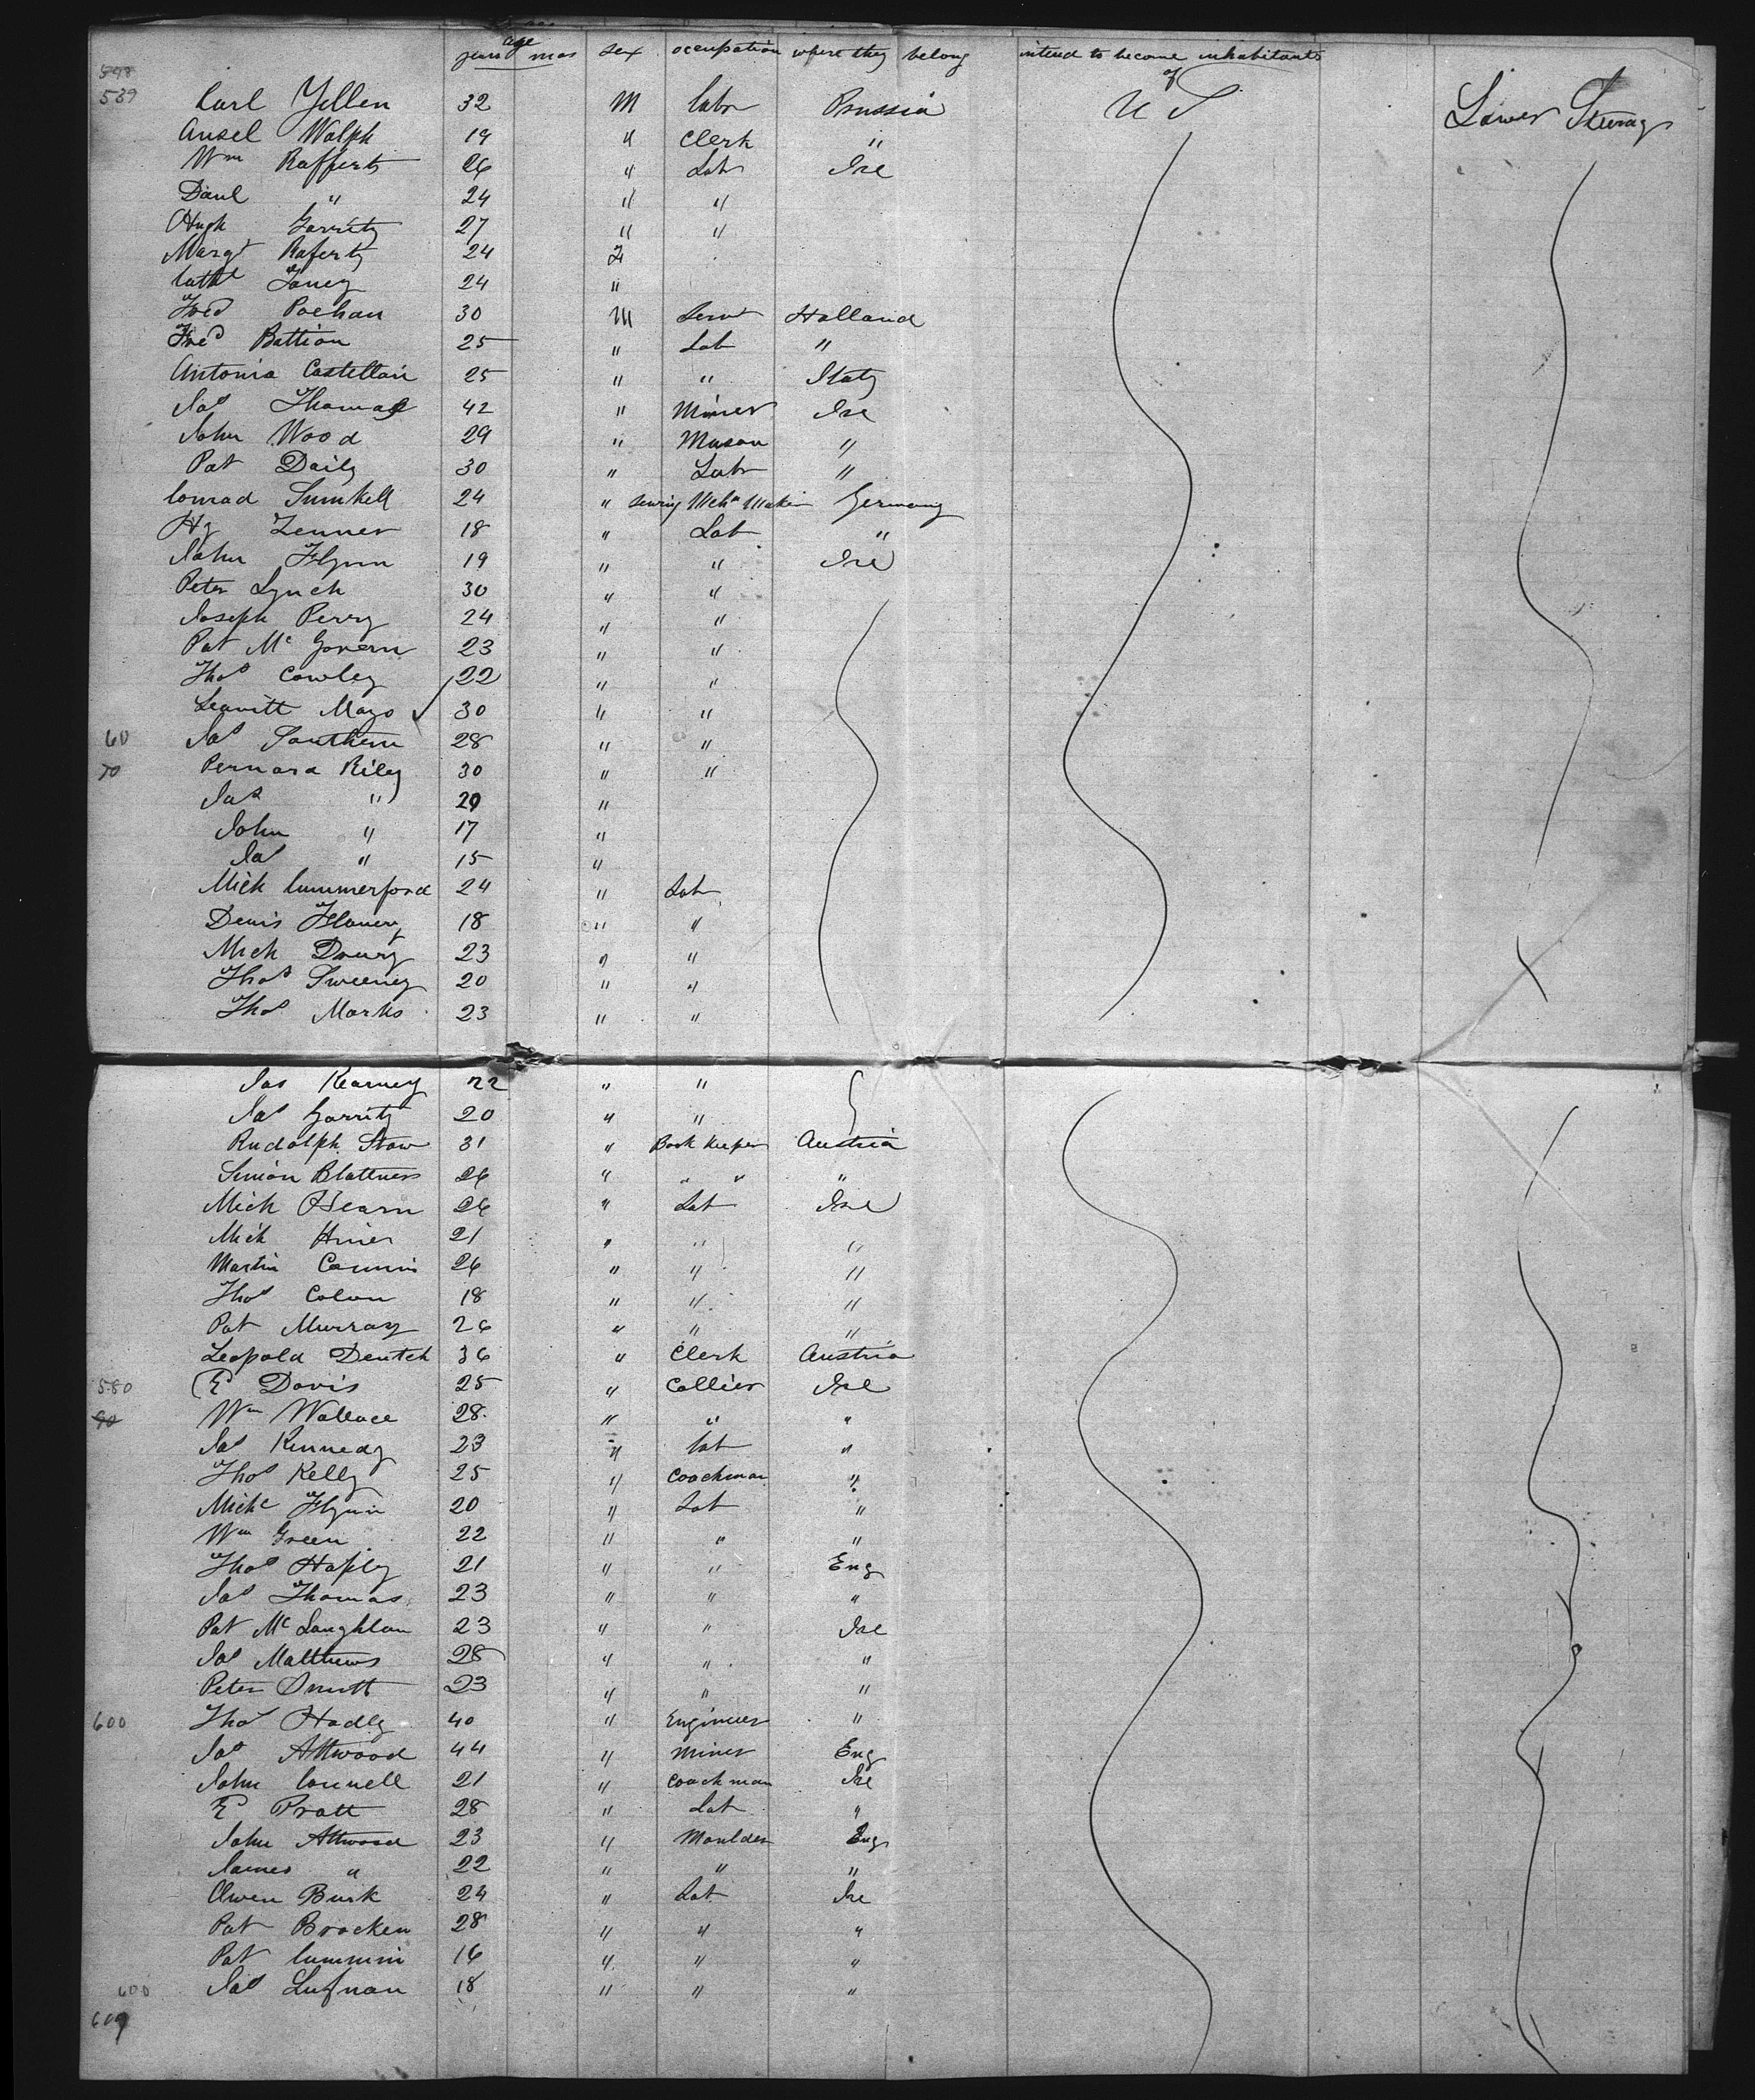 age
years mos sex occupation where they belong intend to become inhabitants of
598
539 Carl Yellen 32 M Labr Prussia U S Lower Steerage
Ansel Wolph 19 " Clerk "
Wm Rafferty 26 " Labr Ire
Danl " 24 " "
Hugh Garrity 27 " "
Margt Raferty 24 F
Cathe Toney 24 "
Fred Poehan 30 M Servt Holland
Fred Battion 25 " Lab "
Antonia Castellani 25 " " Italy
Jas Thomas 42 " Miner Ire
John Wood 29 " Mason "
Pat Daily 30 " Labr "
Conrad Sunkell 24 " Sewing Mchn Maker Germany
Hy Zenner 18 " Lab "
John Flynn 19 " " Ire
Peter Lynch 30 " "
Joseph Perry 24 " "
Pat Mc Govern 23 " "
Thos Cowley 22 " "
Leavitt Mayo 30 " "
60 Jas Southern 28 " "
70 Bernard Riley 30 " "
Jas " 20 "
John " 17 "
Jas " 15 "
Mich Cummerford 24 " Lab
Denis Flanery 18 " "
Mich Drury 23 " "
Thos Sweeney 20 " "
Thos Marks 23 " "
Jas Kearney 22 " "
Jas Garrity 20 " "
Rudolph Stow 31 " Book Keeper Austria
Simon Blattners 26 " " " "
Mich Hearn 26 " Lab Ire
Mich Hines 21 " " "
Martin Commins 26 " " "
Thos Colon 18 " " "
Pat Murray 26 " " "
Leopold Deutch 36 " Clerk Austria
580 E Davis 25 " Collier Ire
90 Wm Wallace 28 " " "
Jas Kennedy 23 " Lab "
Thos Kelly 25 " Coachman "
Michl Flynn 20 " Lab "
Wm Green 22 " " "
Thos Hapley 21 " " Eng
Jas Thomas 23 " " "
Pat Mc Laughlan 23 " " Ire
Jas Matthews 28 " " "
Peter Smitt 23 " " "
600 Thos Hadly 40 " Engineer "
Jas Attwood 44 " Miner Eng
John Connell 21 " Coachman Ire
E Pratt 28 " Lab "
John Attwood 23 " Moulder Eng
James " 22 " " "
Owen Burk 24 " Lab Ire
Pat Bracken 28 " " "
Pat Cummin 16 " " "
600 Jas Lufnan 18 " " "
609